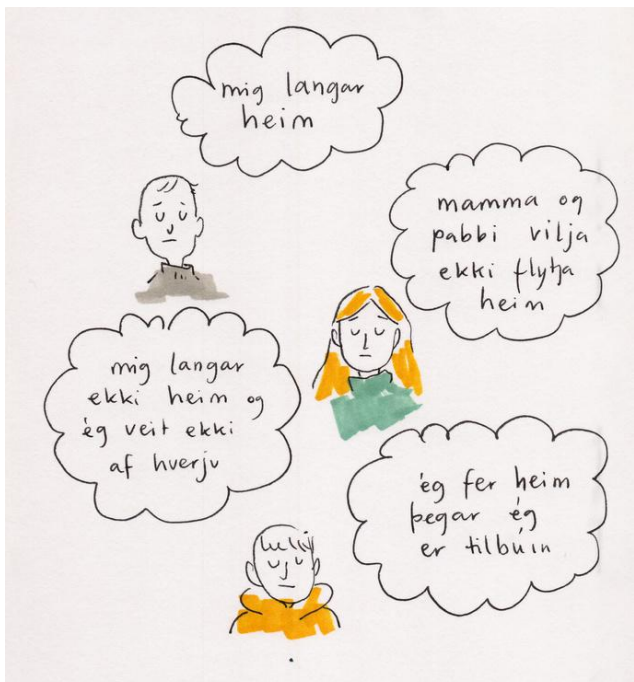 mig langar
heim
mamma og
pabbi vilja
ekki flytja
heim
mig langar
ekki heim og
ég veit ekki
af hverju
ég fer heim
þegar ég
er tilbúin